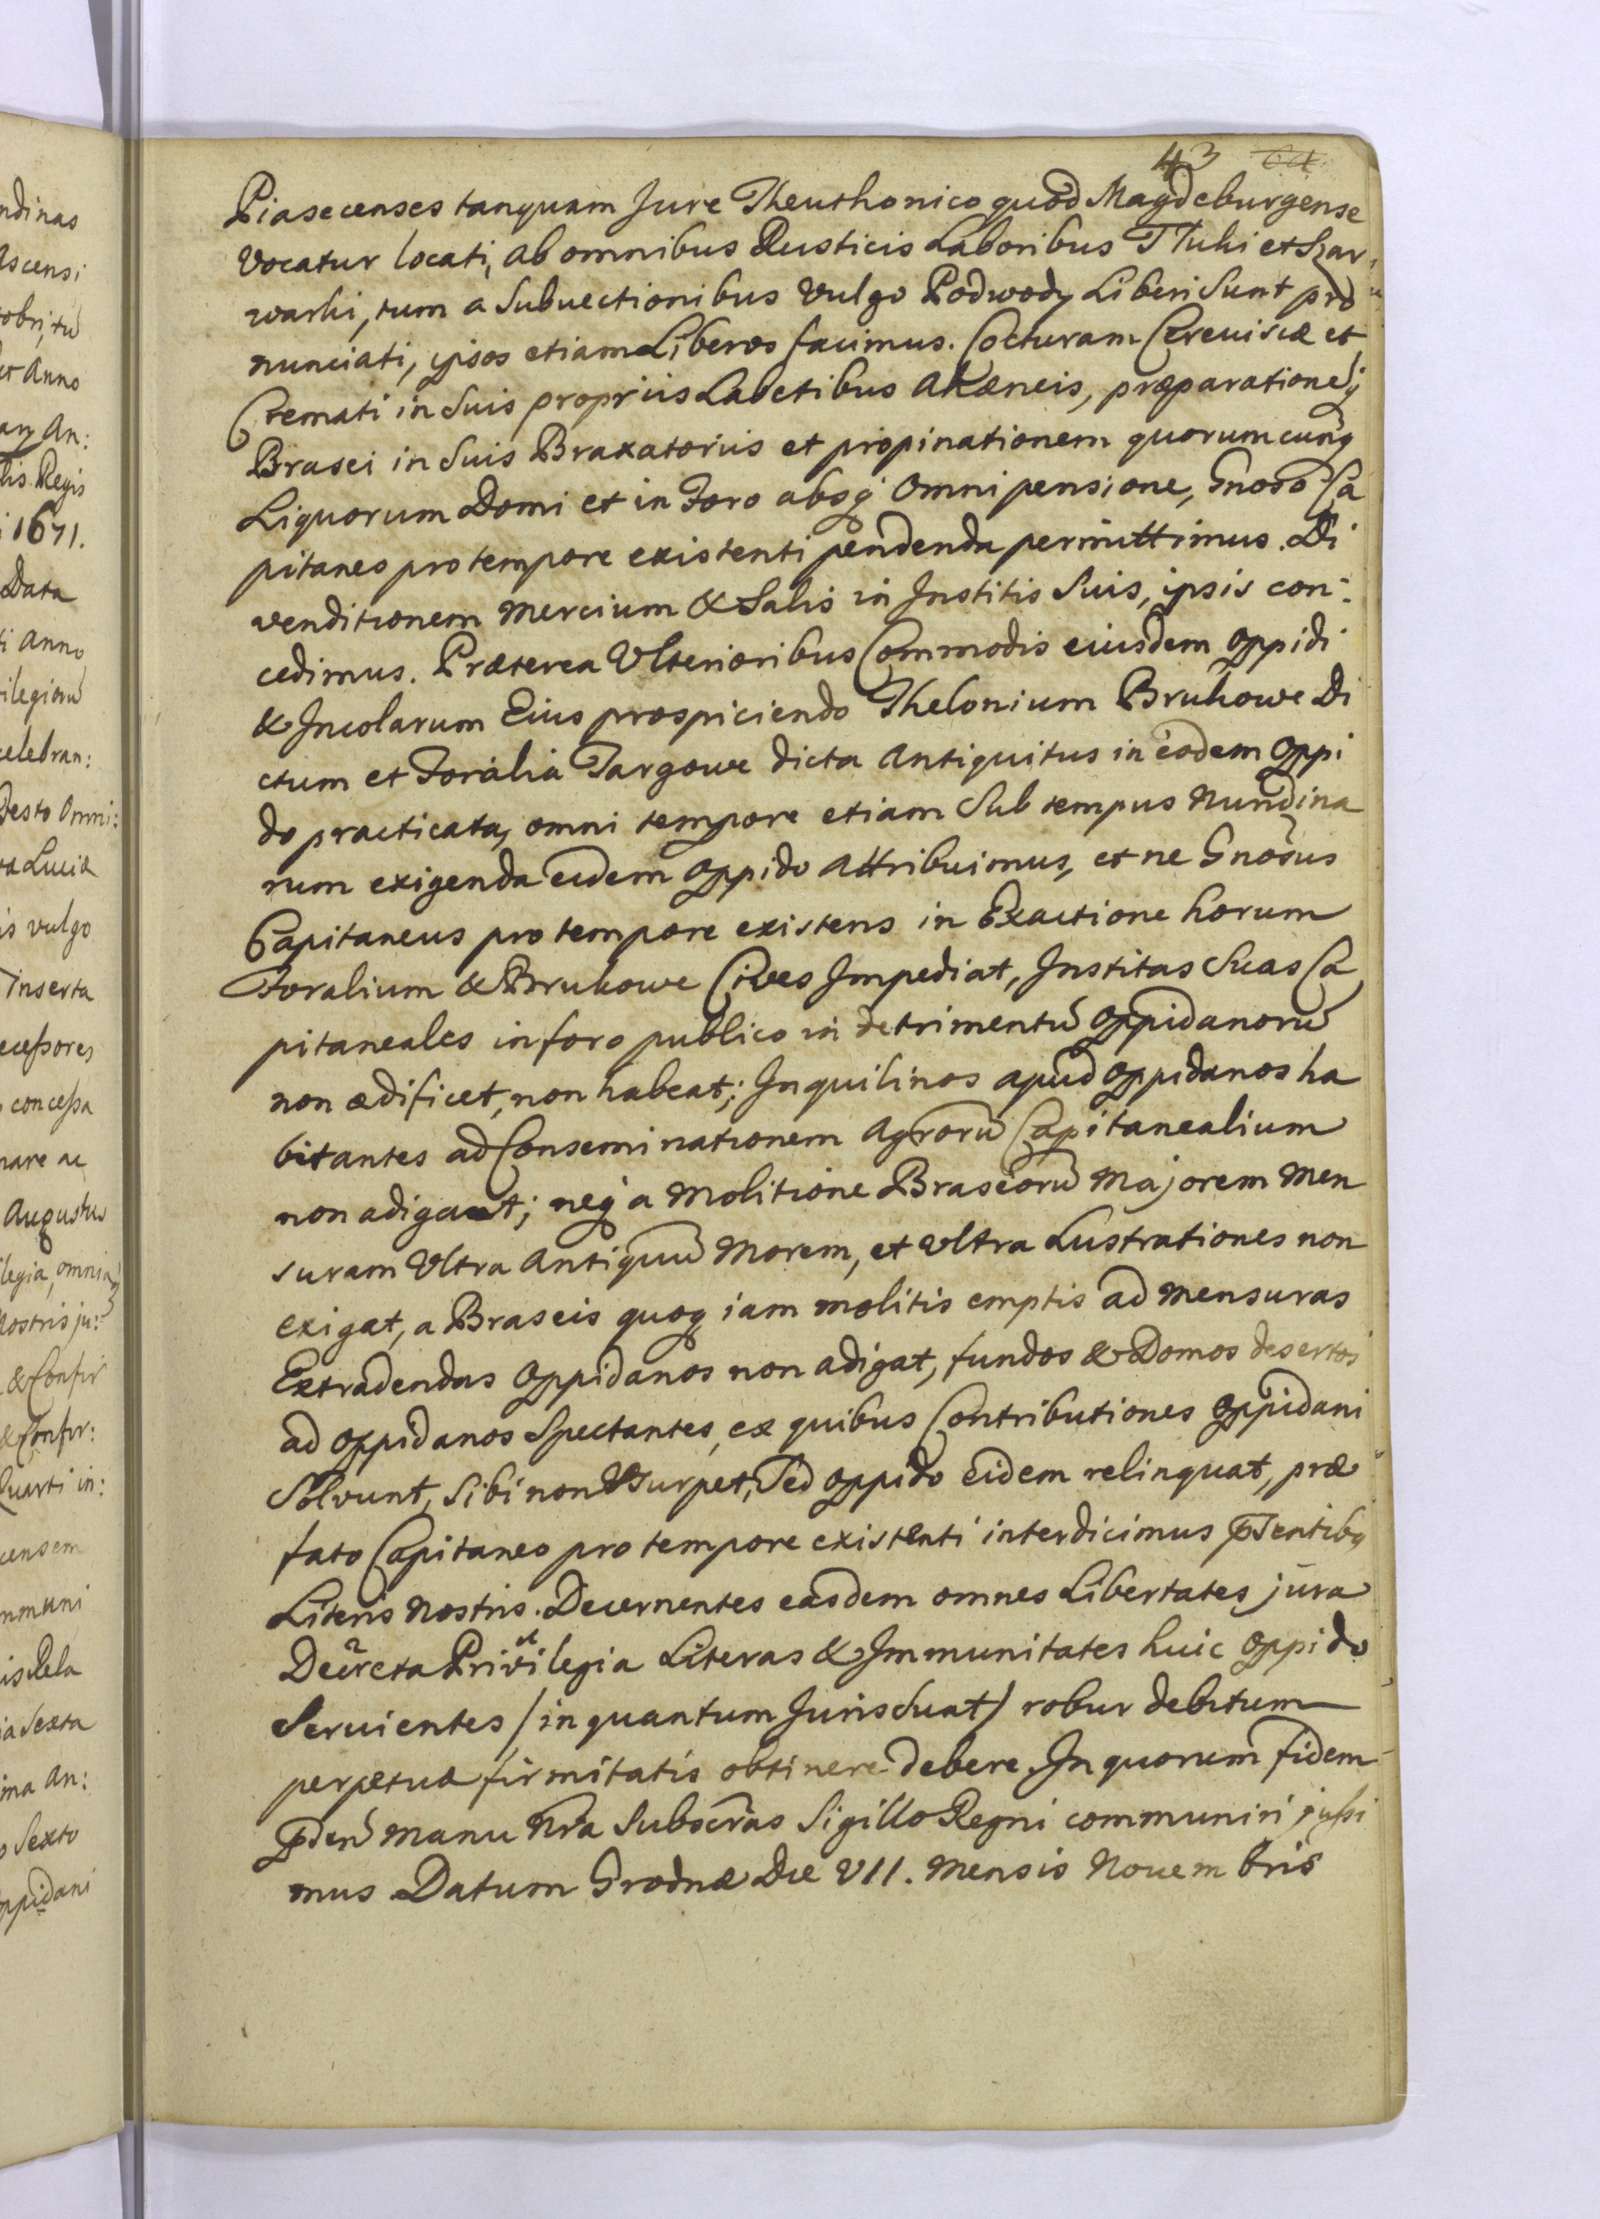 43
Piasecenses tanquam Jure Theuthonico quod Magdeburgense
Vocatur locati, ab omnibus Rusticis Laboribus Tłuki et Szar
warki, tum a Subuectionibus vulgo Podwody Liberi Sunt pro
nunciati, ipsos etiam Liberos facimus. Cocturam Cereuisiæ et
Cremati in Suis propriis Labetibus Ahæneis, præparationeq́
Brasei in Suis Braxatoriis et propinationem quorumcunq
Liquorum Domi et in Foro absq́ omni pensione, Gnoso Ca
pitaneo pro tempore existenti pendenda permittimus. Di
venditionem Mercium & Salis in Institis Suis, ipsis con:
cedimus. Præterea Vlterioribus Commodis eiusdem oppidi
& Incolarum Eius prospiciendo Thelonium Brukowe Di
ctum et Foralia Targowe dicta Antiquitus in eodem Oppi
do practicata, omni tempore etiam Sub tempus Nundina
rum exigenda eidem oppido attribuimus, et ne Gnosus
Capitaneus pro tempore existens in Exactione horum
Foralium & Brukowe Cives Impediat, Institas Suas Ca
pitaneales in foro publico in detrimentū oppidanorū
non ædificet, non habeat; Inquilinos apud oppidanos ha
bitantes ad Conseminationem Agrorū Capitanealium
non adigat; neq́ a Molitione Braseorū Majorem Men
suram Vltra Antiquū Morem, et vltra Lustrationes non
exigat, a Braseis quoq iam molitis emptis ad mensuras
Extradendas Oppidanos non adigat, fundos & Domos desertos
ad oppidanos Spectantes, ex quibus Contributiones oppidani
Solvunt, Sibi non Vsurpet, Sed oppido eidem relinquat, præ
fato Capitaneo pro tempore existenti interdicimus pr̄sentibq
Literis Nostris. Decernentes easdem omnes Libertates jura
Decreta Privilegia Literas & Immunitates huic oppido
Seruientes /in quantum Juris Suat/ robur debitum
perpetuæ firmitatis obtinere debere. In quorum fidem
p̄den̄ Manu Nr̄a Subscr̄as Sigillo Regni communiri jussi
mus Datum Grodnæ Die VII. Mensis Nouembris